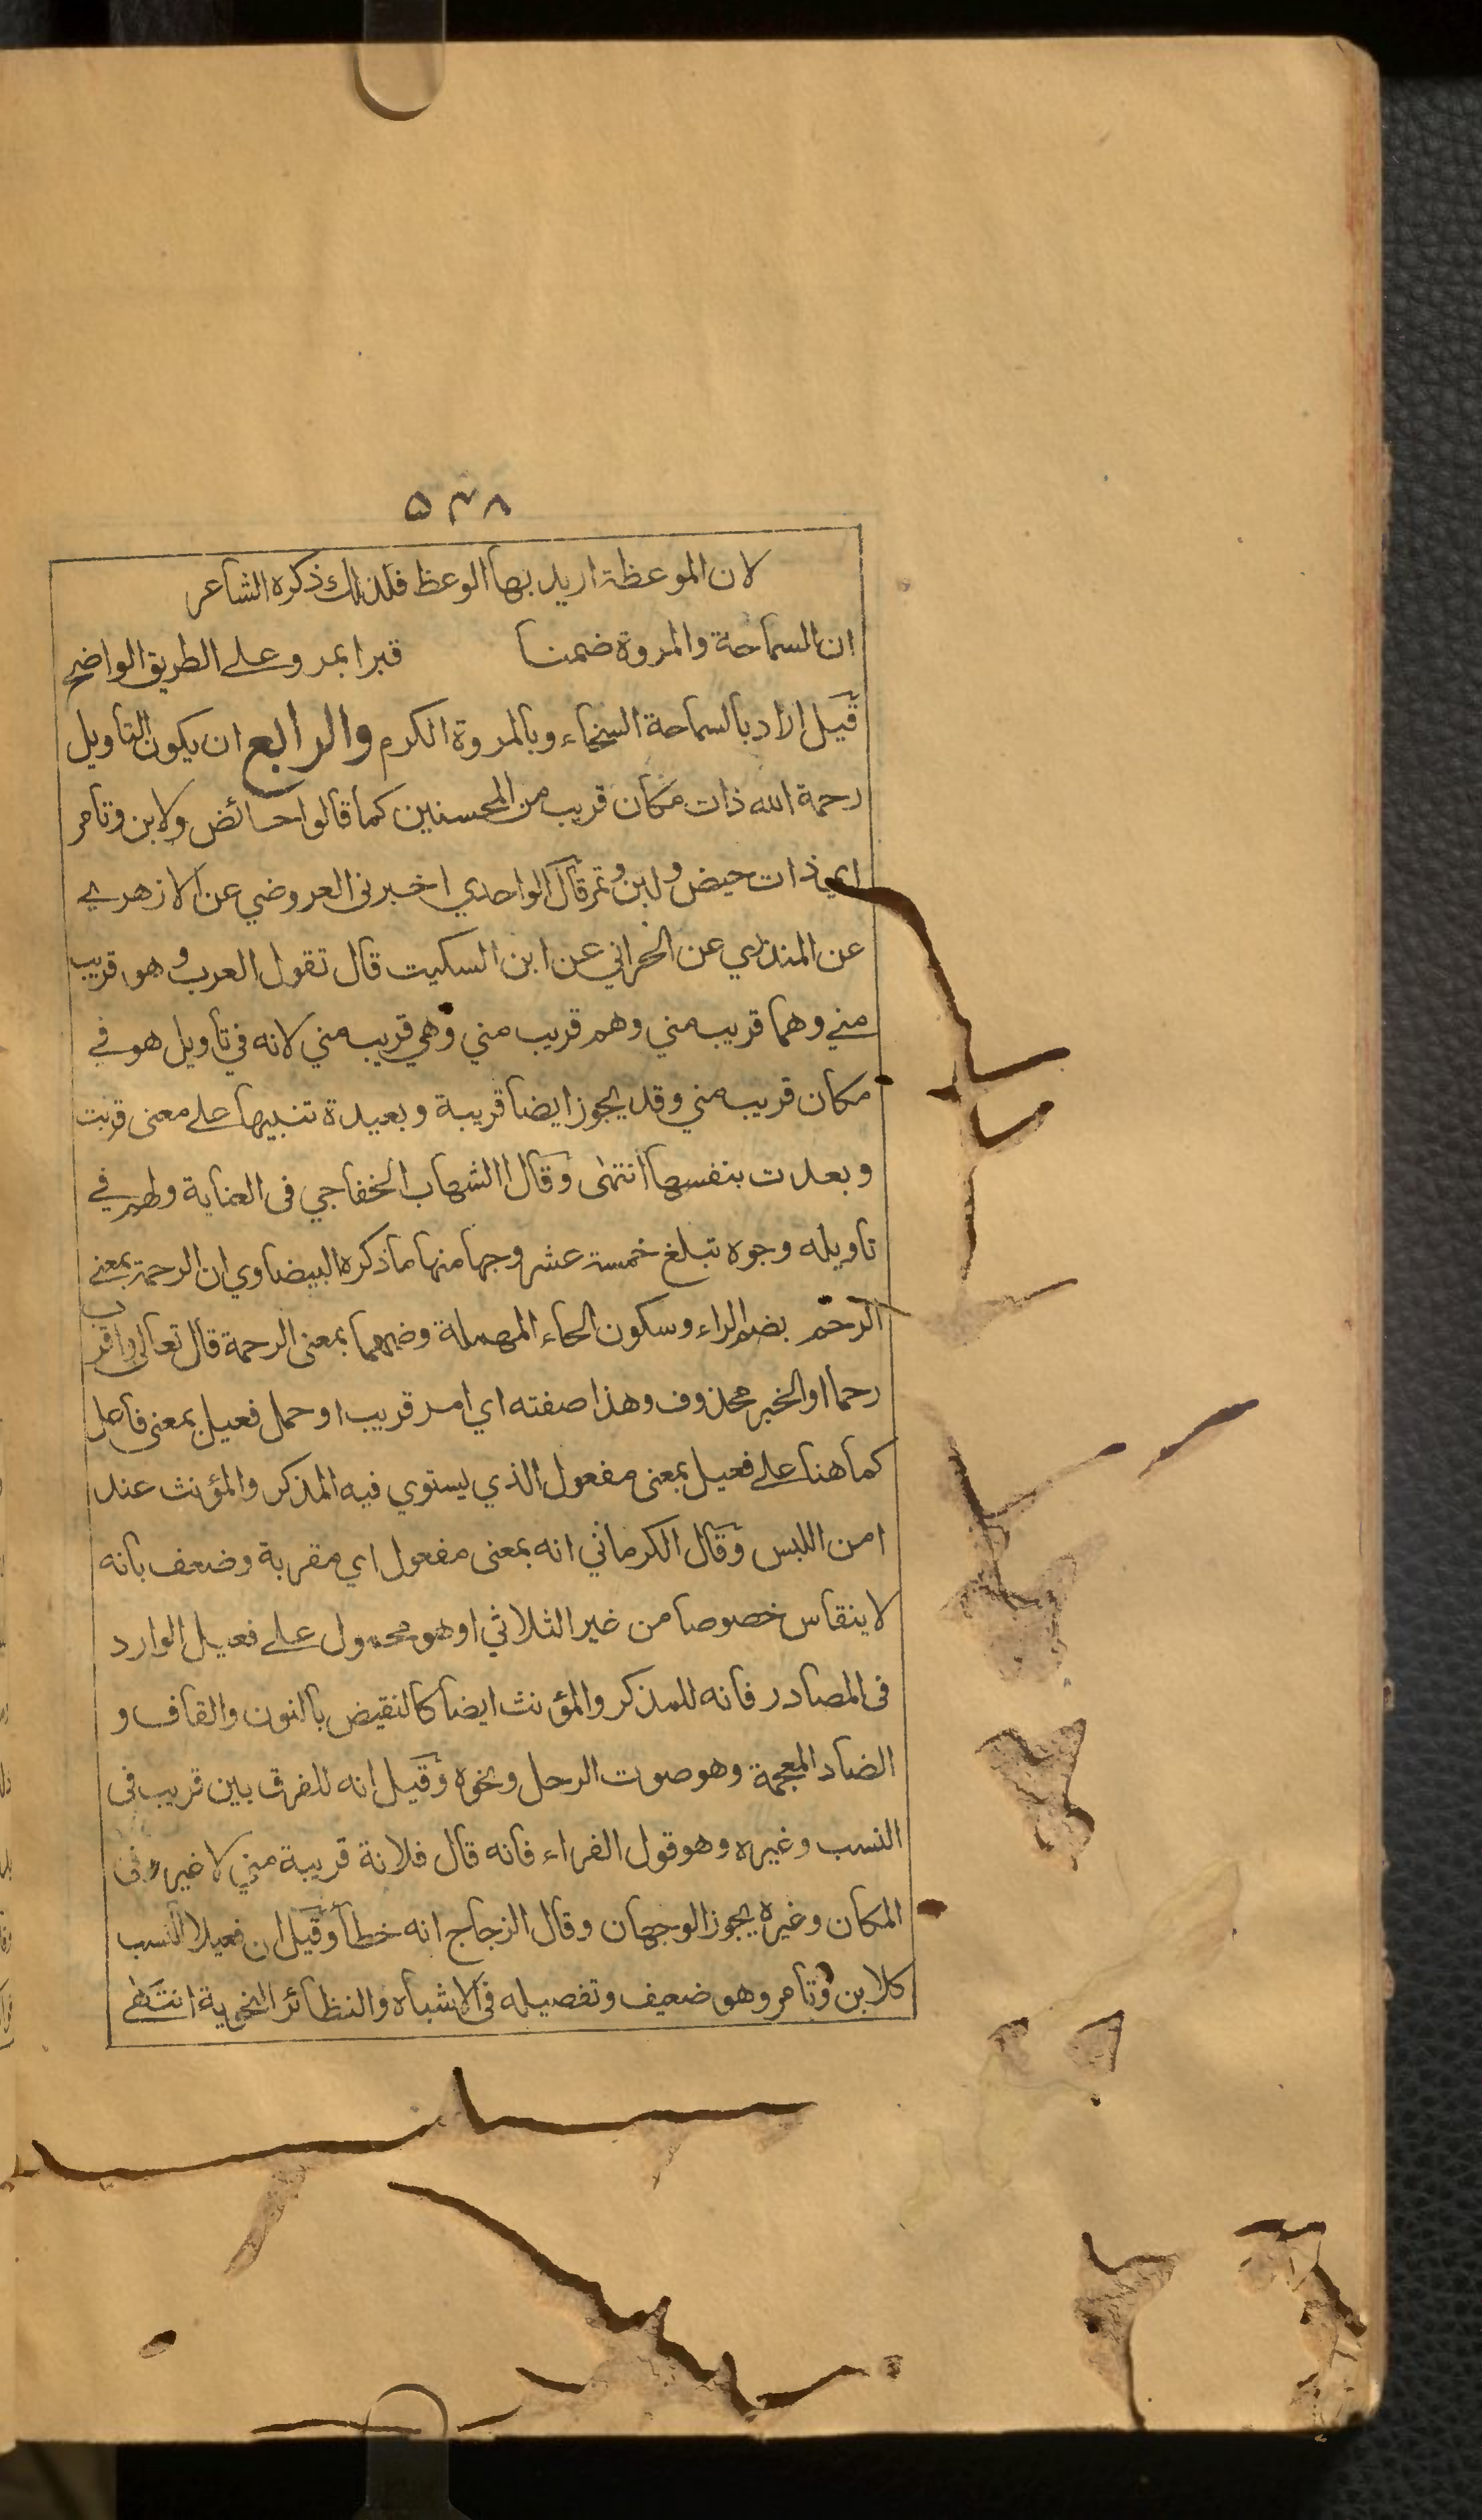 ٥٣٨
لان الموعظة اريد بها الوعظ فلذلك ذكره الشاعر
ان السماحة والمروة ضمنا قبرا بمرو على الطريق الواضح
قيل اراد بالسماحة السخاء وبالمروة الكرم والرابع ان يكون التاويل
رحمة الله ذات مكان قريب من المحسنين كما قالوا حائض ولابن وتامر
اي ذات حيض ولبن وتمر قال الواحدي اخبرني العروضي عن الازهري
عن المنذري عن الحراني عن ابن السكيت قال تقول العرب هو قريب
مني وهما قريب مني وهم قريب مني وهي قريب مني لانه في تأويل هو في
مكان قريب مني وقد يجوز ايضا قريبة وبعيدة تنبيها على معنى قربت
وبعدت بنفسها انتهى وقال الشهاب الخفاجي في العناية ولهم في
تاويله وجوه تبلغ خمسة عشر وجها منها ما ذكره البيضاوي ان الرحمة بمعنى
الرحم بضم الراء وسكون الحاء المهملة وضمهما بمعنى الرحمة قال تعالى واقرب
رحما او الخبر محذوف وهذا صفته اي امر قريب او حمل فعيل بمعنى فاعل
كما هنا على فعيل بمعنى مفعول الذي يستوي فيه المذكر والمؤنث عند
امن اللبس وقال الكرماني انه بمعنى مفعول اي مقربة وضعف بانه
لا ينقاس خصوصا من غير الثلاثي او هو محمول على فعيل الوارد
في المصادر فانه للمذكر والمؤنث ايضا كالنقيض بالنون والقاف و
الضاد المعجمة وهو صوت الرحل ونحوه وقيل انه للفرق بين قريب في
النسب وغيره وهو قول الفراء فانه قال فلانة قريبة مني لا غير وفي
المكان وغيره يجوز الوجهان وقال الزجاج انه خطأ وقيل ان فعيلا للنسب
كلابن وتامر وهو ضعيف وتفصيله في الاشباه والنظائر النحوية انتهى